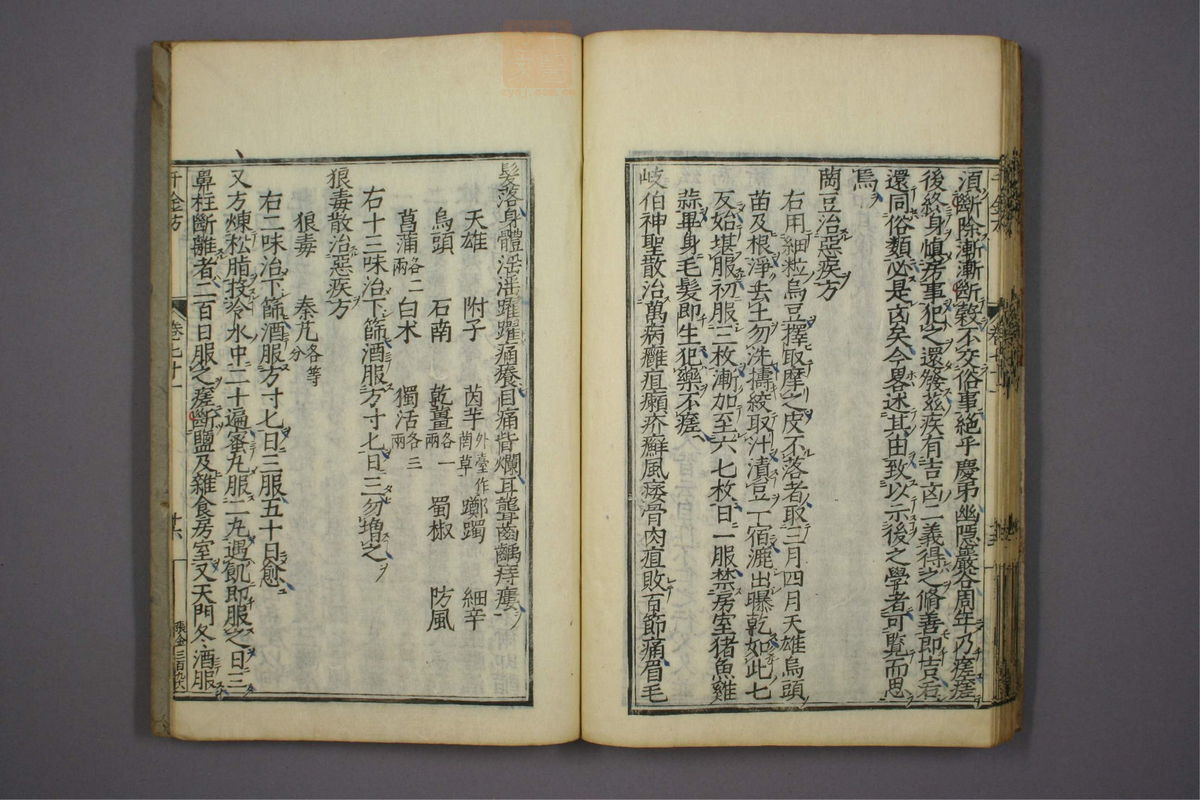 須斷除漸漸斷穀不交俗事絕乎慶弔幽隱巖谷周年乃瘥瘥
後終身慎房事犯之還發茲疾有吉凶二義得之脩善即吉若
還同俗類必是凶矣今畧述其由致以示後之學者可覽而思
焉
䓞豆治惡疾方
右用細粒烏豆擇取摩之皮不落者取三月四月天雄烏頭
苗及根淨去土勿洗擣絞取汁漬豆一宿漉出曝乾如此七
反始堪服初服三枚漸加至六七枚日一服禁房室猪魚雞
蒜畢身毛髮即生犯藥不瘥
岐伯神聖散治萬病癰疽癩疥癬風痿骨肉疽敗百節痛眉毛
髮落身體淫淫躍躍痛癢目痛眥爛耳聾齒齲痔瘻
天雄 附子 茵芋 外臺作䓞草 躑躅 細辛
烏頭 石南 乾薑各一兩 蜀椒 防風
菖蒲各二兩 白朮 獨活各三兩
右十三味治下篩酒服方寸匕日三勿增之
狼毒散治惡疾方
狼毒 秦艽各等分
右二味治下篩酒服方寸匕日三服五十日愈
又方煉松脂投冷水中二十遍蜜丸服二丸遇飢即服之日三
鼻柱斷離者二百日服之瘥斷鹽及雜食房室又天門冬酒服
千金方 卷七十一 廿六